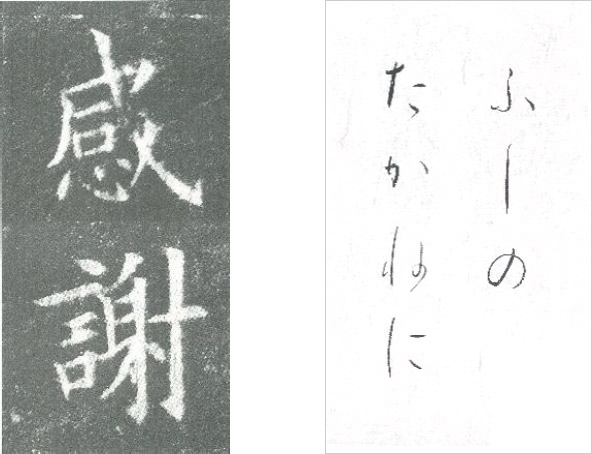 感謝
ふしの
たかねに